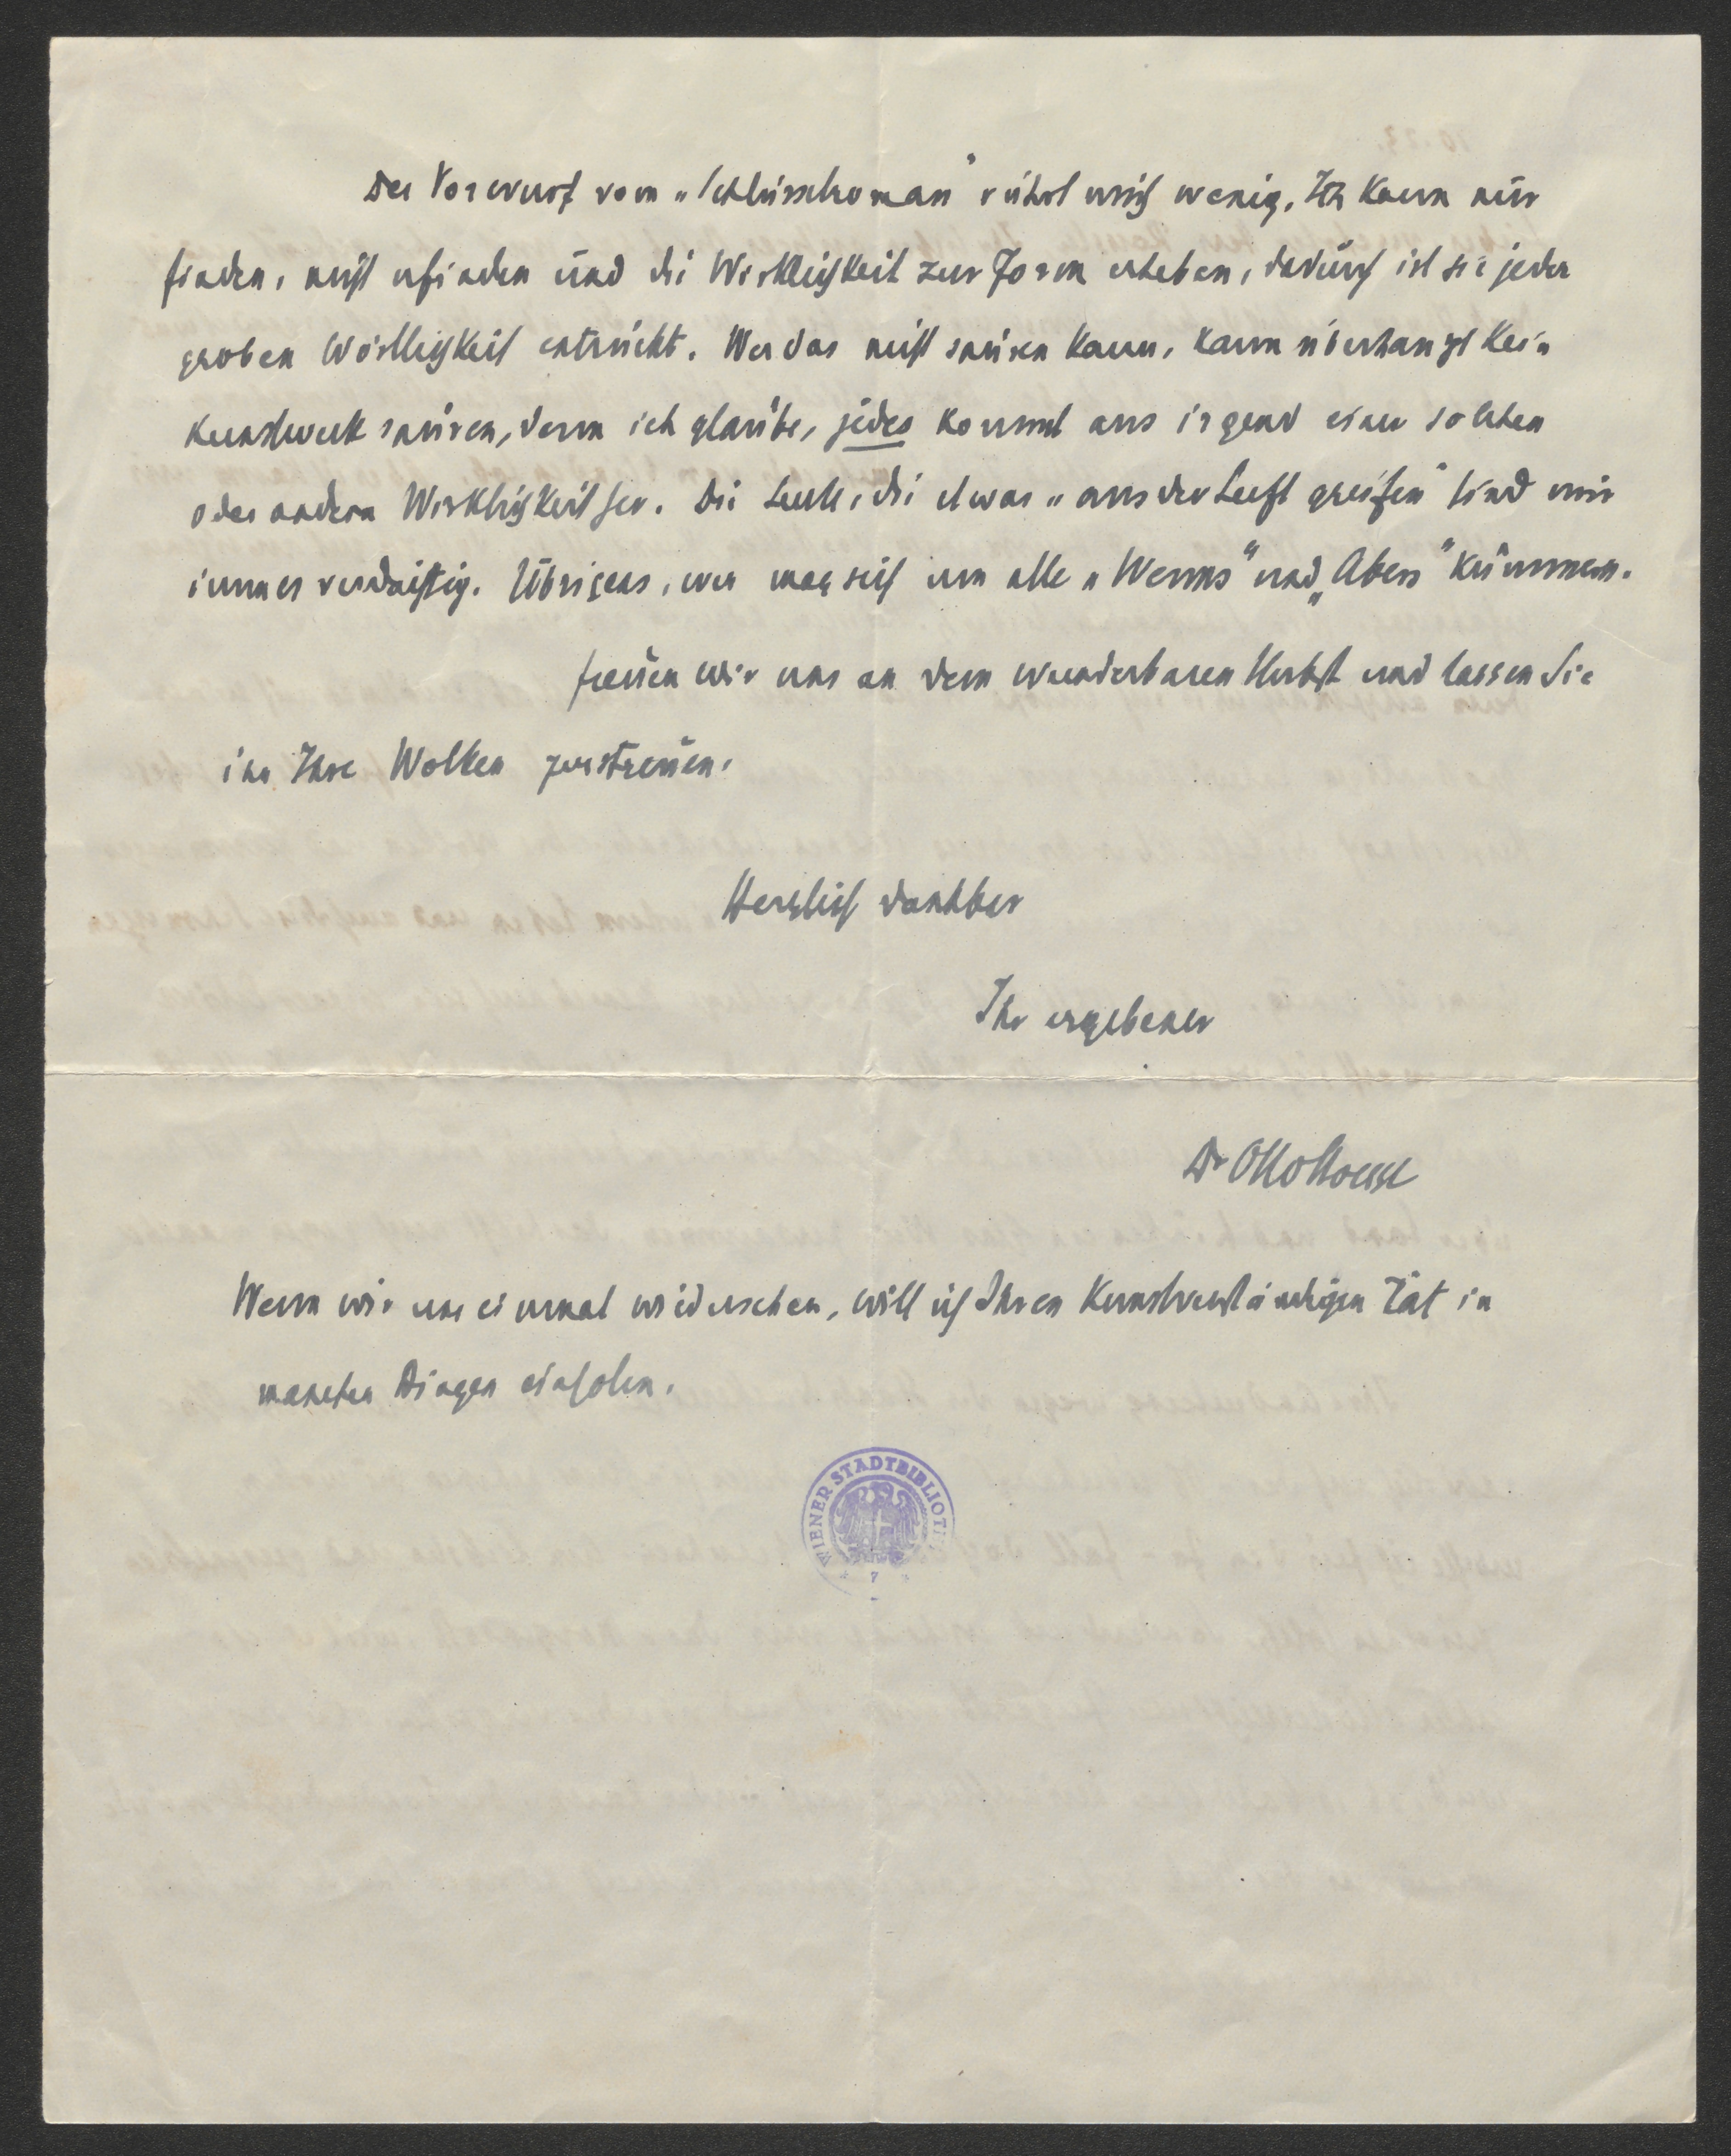 Der Vorwurf vom „Schlüsselroman" rührt mich wenig. Ich kann nur
finden, nicht erfinden und die Wirklichkeit zur Form erheben, dadurch ist sie jeder
groben Wörtlichkeit entrückt. Wer das nicht spüren kann, kann überhaupt kein
Kunstwerk spüren, denn ich glaube, jedes kommt aus irgend einer solchen
oder andern Wirklichkeit her. Die Leute, die etwas „aus der Luft greifen" sind mir
immer verdächtig. Übrigens, wer mag sich um alle „Wenns" und „Abers" kümmern.
freuen wir uns an dem wunderbaren Herbst und lassen Sie
ihn Ihre Wolken zerstreuen.
Herzlich dankbar
Ihr ergebener
Dr Otto Stoessl
Wenn wir uns einmal wiedersehen, will ich Ihren Kunstverständigen Rat in
manchen Dingen einholen.
WIENER STADTBIBLIOTHEK
* 7 *